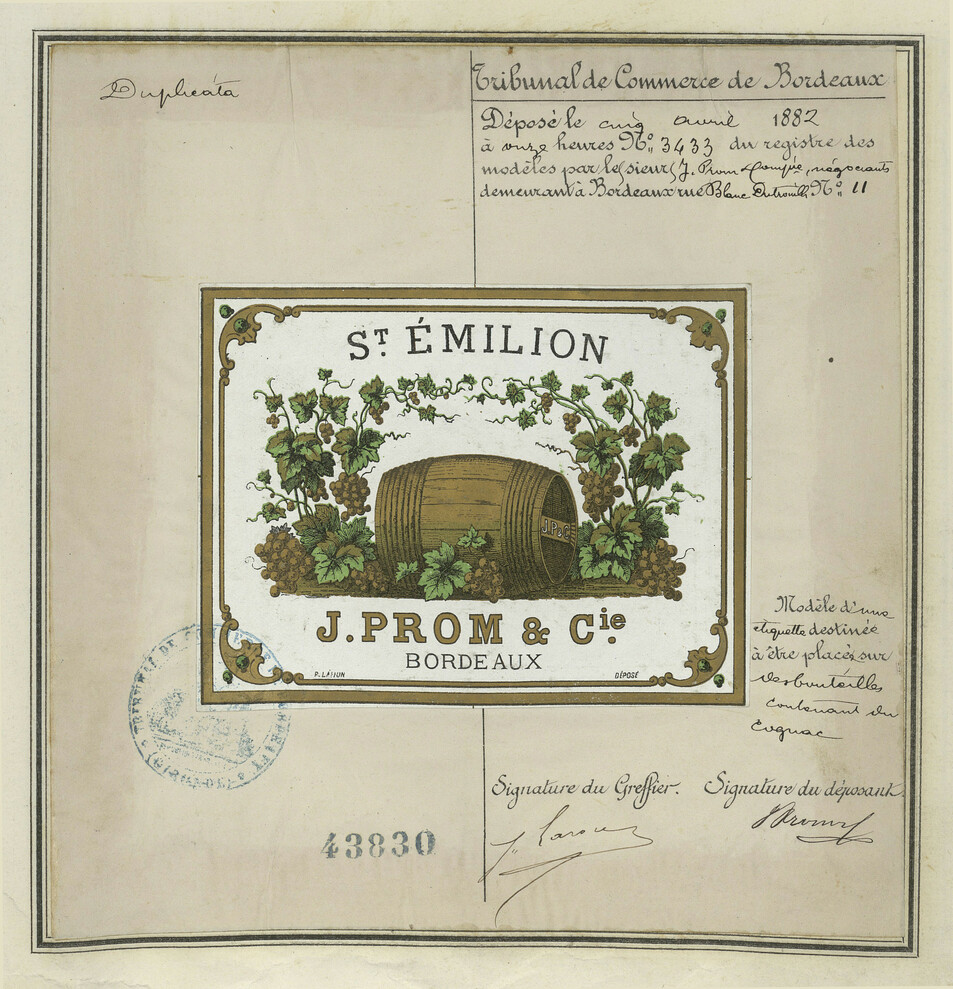 Duplicata
Tribunal de Commerce de Bordeaux
Déposé le cinq avril 1882
à onze heures No. 3433 du registre des
modèles par les sieurs J. Prom & Compie, négociants
demeurant à Bordeaux rue Blanc Dutrouilh No. 11
ST. ÉMILION
J.P. & Cie
J. PROM & Cie.
BORDEAUX
DÉPOSÉ
Modèle d'une
etiquette destinée
à être placée sur
des bouteilles
contenant du
Cognac
TRIBUNAL DE COMMERCE DE BORDEAUX
(GIRONDE)
Signature du Greffier. Signature du déposant.
43830